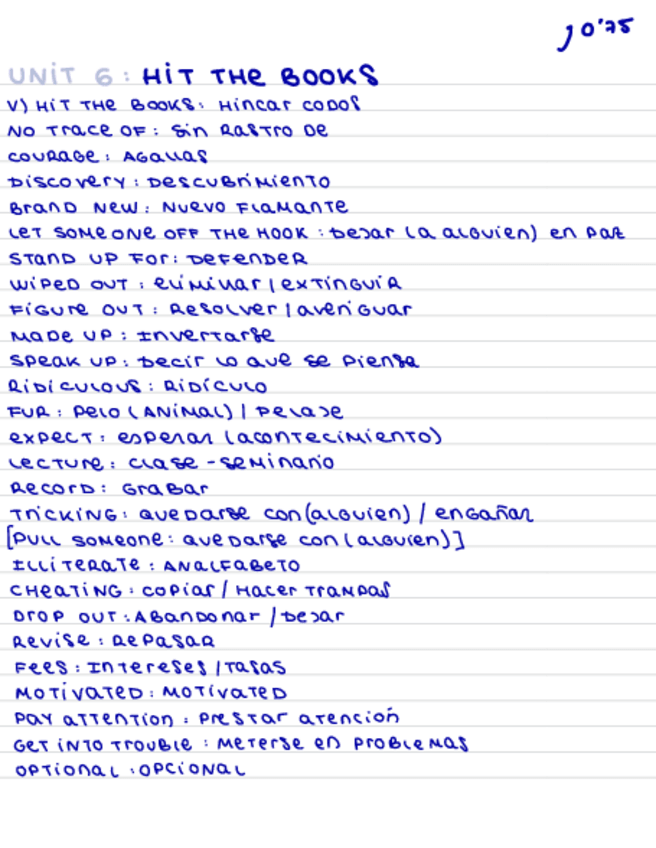 J 0'75
UNIT 6: HIT THE BOOKS
V) HIT THE BOOKS: HINCAR CODOS
NO TRACE OF: SIN RASTRO DE
COURAGE: AGALLAS
DISCOVERY: DESCUBRIMIENTO
BRAND NEW: NUEVO FLAMANTE
LET SOMEONE OFF THE HOOK: DEJAR (A ALGUIEN) EN PAZ
STAND UP FOR: DEFENDER
WIPED OUT: ELIMINAR / EXTINGUIR
FIGURE OUT: RESOLVER / AVERIGUAR
MADE UP: INVERTARSE
SPEAK UP: DECIR LO QUE SE PIENSA
RIDICULOUS: RIDÍCULO
FUR: PELO (ANIMAL) / PELAJE
EXPECT: ESPERAR (ACONTECIMIENTO)
LECTURE: CLASE - SEMINARIO
RECORD: GRABAR
TRICKING: QUEDARSE CON (ALGUIEN) / ENGAÑAR
[PULL SOMEONE: QUEDARSE CON (ALGUIEN)]
ILLITERATE: ANALFABETO
CHEATING: COPIAR / HACER TRAMPAS
DROP OUT: ABANDONAR / DEJAR
REVISE: REPASAR
FEES: INTERESES / TASAS
MOTIVATED: MOTIVATED
PAY ATTENTION: PRESTAR ATENCIÓN
GET INTO TROUBLE: METERSE EN PROBLEMAS
OPTIONAL: OPCIONAL